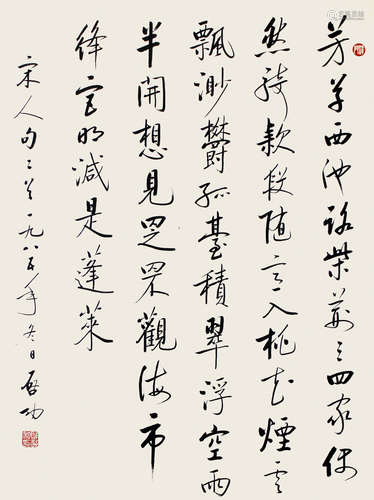 芳草西池路柴荆三四家偶
然騎款段随意入桃花煙雲
飄渺欝孤臺積翠浮空雨
半開想見罘觀海市
絳宫明滅是蓬萊
宋人句二首一九八五年冬日啓功